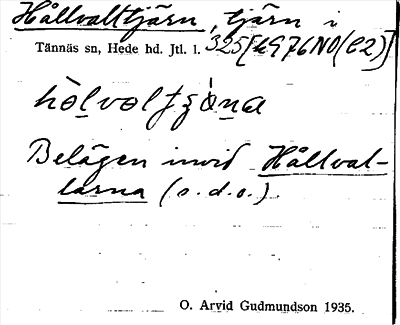 Hållvalltjärn, tjärn i
Tännäs sn, Hede hd. Jtl. l. 325[kG76N0(C2)]
Belägen invid Hållval-
larna (s.d.o.).
O. Arvid Gudmundson 1935.